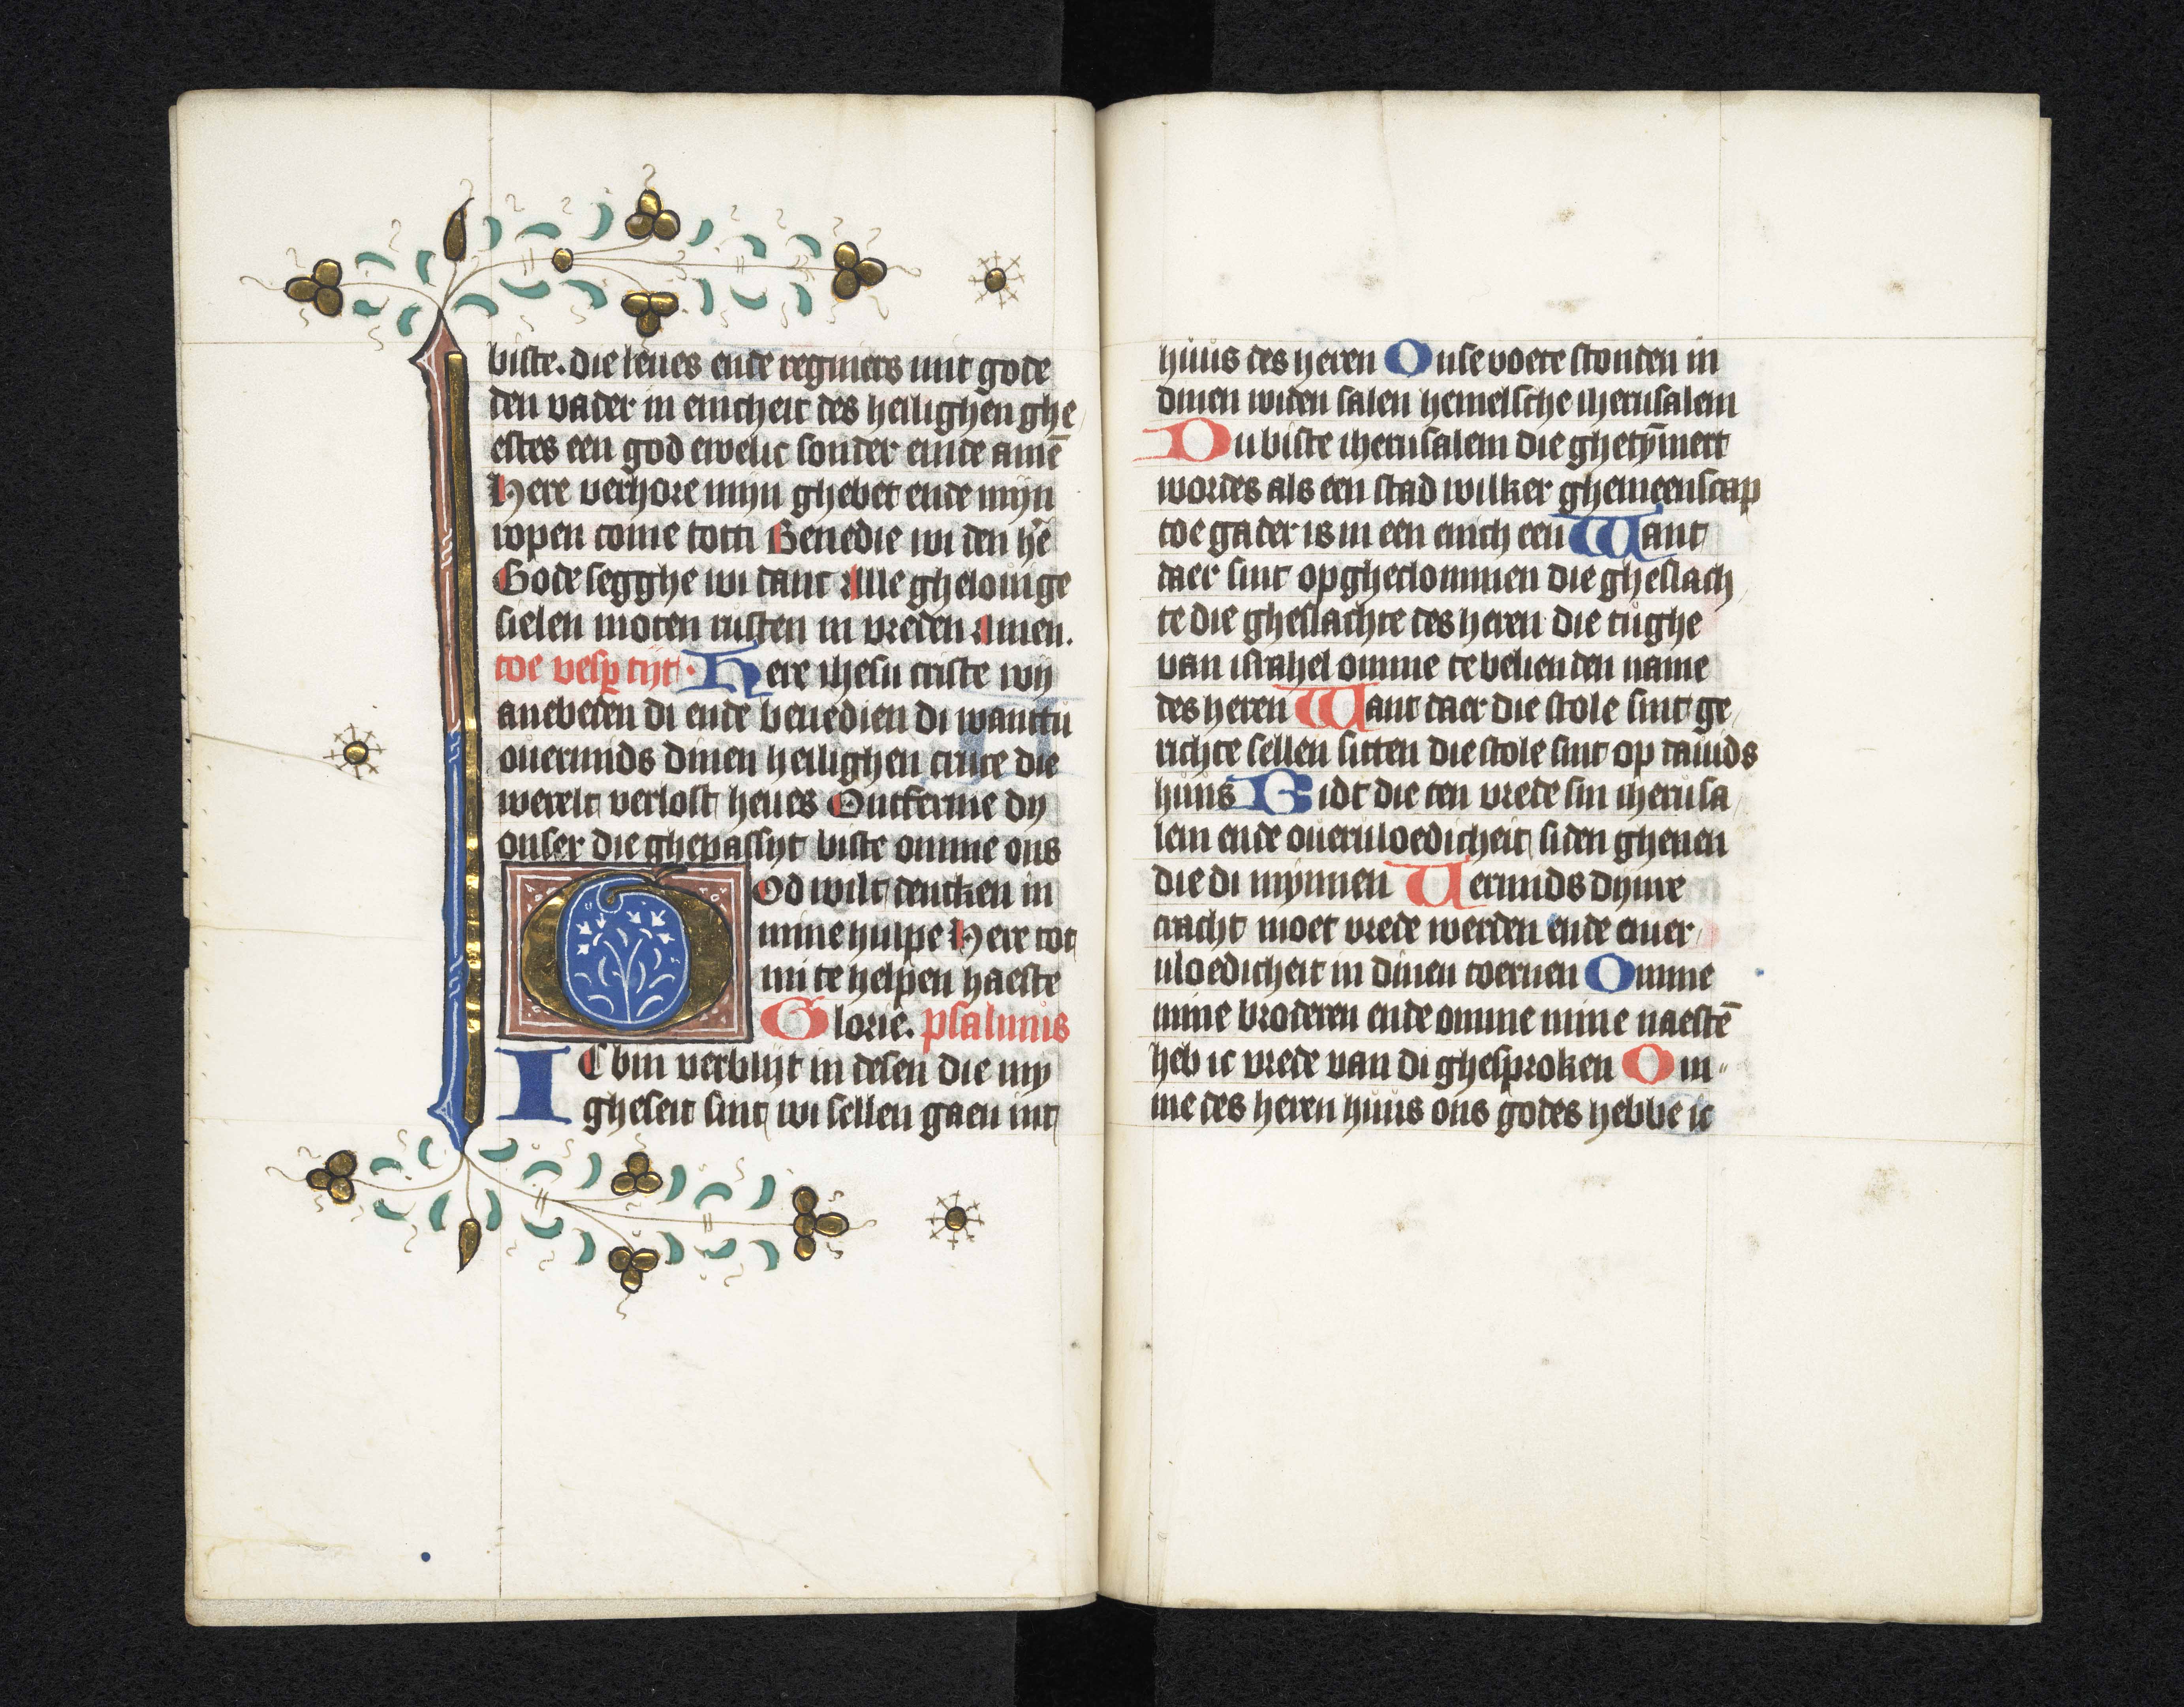 biste. die leues ende regniers mit gode
den vader in eincheit des heilighen ghe
estes een god ewelic sonder einde amē
Here verhore mijn ghebet ende mijn
ropen come totti Benedie wi den hē
Gode segghe wi danc Alle gheloiuge
sielen moten rusten in vreden Amen.
toe vesp tijt. Here ihesu criste wij
anebeden di ende benedien di wanttu
ouermids dinen heilighen cruce die
werelt verlost heues Ontferme dy
onser die ghepassijt biste omme ons
God wilt dencken in
mine hulpe Here tot
mi te helpen haeste
Glorie. psalmus
IC bin verblijt in desen die my
gheseit sint wi sellen gaen int
huus des heren Onse voete stonden in
dinen widen salen hemelsche iherusalem
Du biste iherusalem die ghetȳmert
wordes als een stad wilker ghemeenscap
toe gader is in een einch een Want
daer sint opgheclommen die gheslach
te die gheslachte des heren die tughe
van israhel omme te belien den name
des heren Want daer die stole sint ge
richte sellen sitten die stole sint op dauids
huus Bidt die ten vrede sin iherusa
lem ende oueruloedicheit siden ghenen
die di mynnen Uermids dynre
cracht moet vrede werden ende ouer
uloedicheit in dinen toernen Omme
mine broderen ende omme mine naestē
heb ic vrede van di ghesproken Om
me des heren huus ons godes hebbe ic